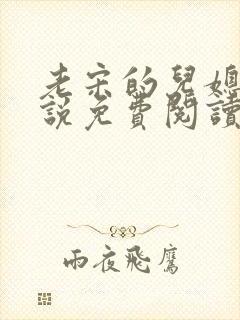 老宋的兒媳
說免費閱讀
雨夜飛鷹